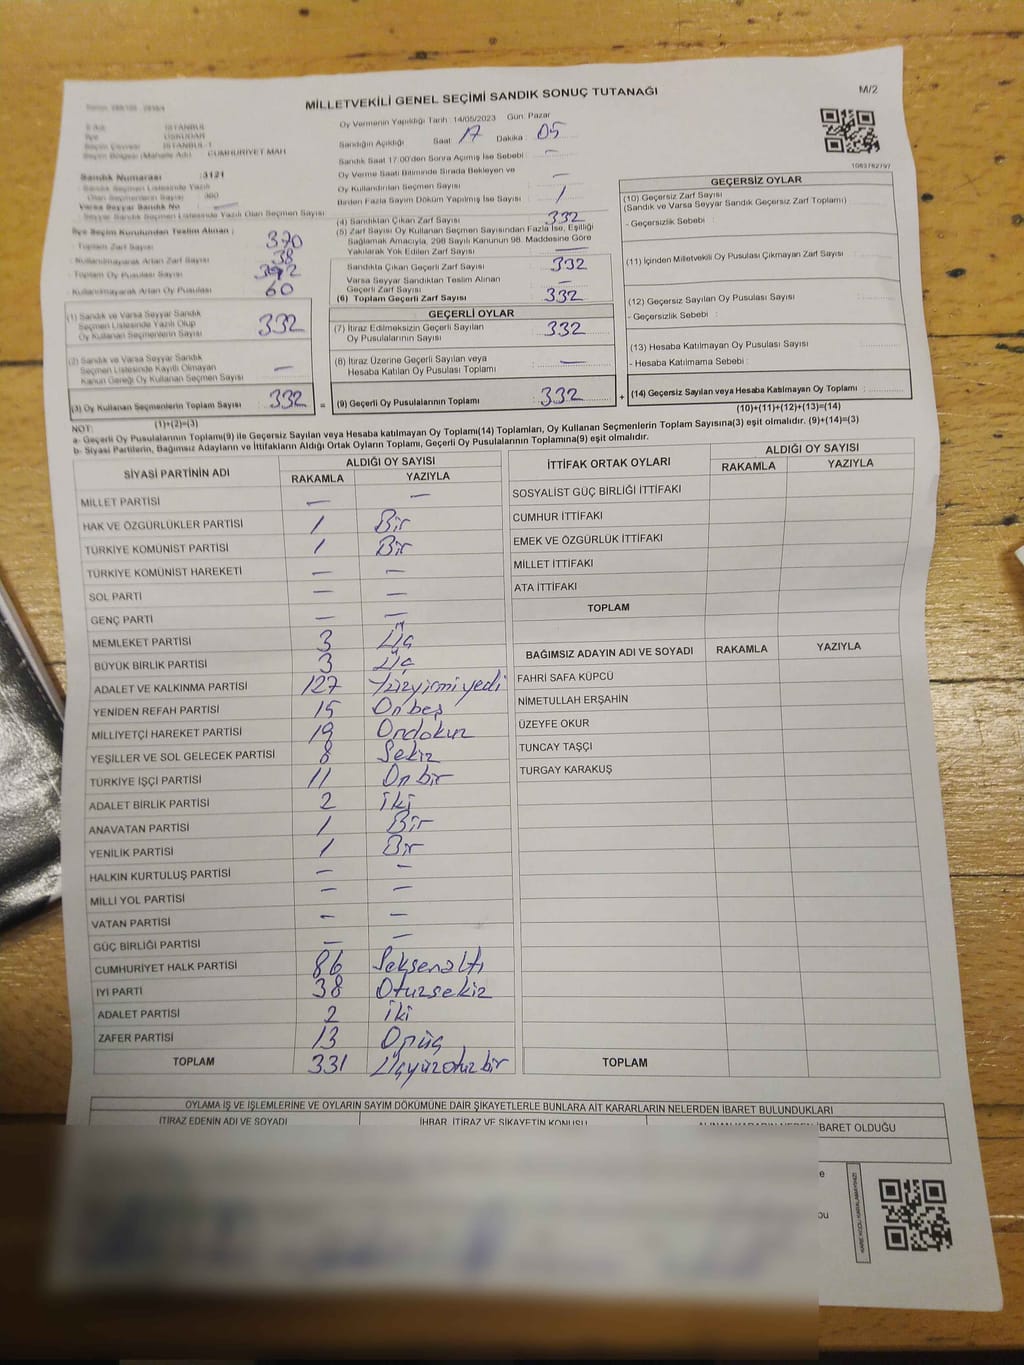 MİLLETVEKİLİ GENEL SEÇİMİ SANDIK SONUÇ TUTANAĞI
M/2
İSTANBUL
ÜSKÜDAR
İSTANBUL-1
Seçim Bölgesi (Mahalle Adı) : CUMHURİYET MAH
Oy Vermenin Yapıldığı Tarih: 14/05/2023 Gün: Pazar
Sandığın Açıldığı Saat: 17 Dakika: 05
Sandık Saat 17:00'den Sonra Açılmış İse Sebebi : —
Oy Verme Saati Bitiminde Sırada Bekleyen ve
Oy Kullandırılan Seçmen Sayısı —
Birden Fazla Sayım Döküm Yapılmış İse Sayısı 1
1083782797
Sandık Numarası : 3121
Sandık Seçmen Listesinde Yazılı
Olan Seçmenlerin Sayısı : 380
Varsa Seyyar Sandık No —
Seyyar Sandık Seçmen Listesinde Yazılı Olan Seçmen Sayısı
İlçe Seçim Kurulundan Teslim Alınan :
- Toplam Zarf Sayısı 370
- Kullanılmayarak Artan Zarf Sayısı 38
- Toplam Oy Pusulası Sayısı 392
- Kullanılmayarak Artan Oy Pusulası 60
(1) Sandık ve Varsa Seyyar Sandık
Seçmen Listesinde Yazılı Olup
Oy Kullanan Seçmenlerin Sayısı 332
(2) Sandık ve Varsa Seyyar Sandık
Seçmen Listesinde Kayıtlı Olmayan
Kanun Gereği Oy Kullanan Seçmen Sayısı —
(3) Oy Kullanan Seçmenlerin Toplam Sayısı : 332
(1)+(2)=(3)
(4) Sandıktan Çıkan Zarf Sayısı 332
(5) Zarf Sayısı Oy Kullanan Seçmen Sayısından Fazla İse, Eşitliği
Sağlamak Amacıyla, 298 Sayılı Kanunun 98. Maddesine Göre
Yakılarak Yok Edilen Zarf Sayısı —
Sandıkta Çıkan Geçerli Zarf Sayısı 332
Varsa Seyyar Sandıktan Teslim Alınan
Geçerli Zarf Sayısı —
(6) Toplam Geçerli Zarf Sayısı 332
GEÇERLİ OYLAR
(7) İtiraz Edilmeksizin Geçerli Sayılan
Oy Pusulalarının Sayısı 332
(8) İtiraz Üzerine Geçerli Sayılan veya
Hesaba Katılan Oy Pusulası Toplamı —
= (9) Geçerli Oy Pusulalarının Toplamı 332 +
GEÇERSİZ OYLAR
(10) Geçersiz Zarf Sayısı
(Sandık ve Varsa Seyyar Sandık Geçersiz Zarf Toplamı)
- Geçersizlik Sebebi :
(11) İçinden Milletvekili Oy Pusulası Çıkmayan Zarf Sayısı
(12) Geçersiz Sayılan Oy Pusulası Sayısı
- Geçersizlik Sebebi :
(13) Hesaba Katılmayan Oy Pusulası Sayısı
- Hesaba Katılmama Sebebi :
(14) Geçersiz Sayılan veya Hesaba Katılmayan Oy Toplamı :
(10)+(11)+(12)+(13)=(14)
NOT:
a- Geçerli Oy Pusulalarının Toplamı(9) ile Geçersiz Sayılan veya Hesaba katılmayan Oy Toplamı(14) Toplamları, Oy Kullanan Seçmenlerin Toplam Sayısına(3) eşit olmalıdır. (9)+(14)=(3)
b- Siyasi Partilerin, Bağımsız Adayların ve İttifakların Aldığı Ortak Oyların Toplamı, Geçerli Oy Pusulalarının Toplamına(9) eşit olmalıdır.
SİYASİ PARTİNİN ADI ALDIĞI OY SAYISI
RAKAMLA YAZIYLA
MİLLET PARTİSİ — —
HAK VE ÖZGÜRLÜKLER PARTİSİ 1 Bir
TÜRKİYE KOMÜNİST PARTİSİ 1 Bir
TÜRKİYE KOMÜNİST HAREKETİ — —
SOL PARTİ — —
GENÇ PARTİ — —
MEMLEKET PARTİSİ 3 Üç
BÜYÜK BİRLİK PARTİSİ 3 Üç
ADALET VE KALKINMA PARTİSİ 127 Yüzyirmiyedi
YENİDEN REFAH PARTİSİ 15 Onbeş
MİLLİYETÇİ HAREKET PARTİSİ 19 Ondokuz
YEŞİLLER VE SOL GELECEK PARTİSİ 8 Sekiz
TÜRKİYE İŞÇİ PARTİSİ 11 Onbir
ADALET BİRLİK PARTİSİ 2 iki
ANAVATAN PARTİSİ 1 Bir
YENİLİK PARTİSİ 1 Bir
HALKIN KURTULUŞ PARTİSİ — —
MİLLİ YOL PARTİSİ — —
VATAN PARTİSİ — —
GÜÇ BİRLİĞİ PARTİSİ — —
CUMHURİYET HALK PARTİSİ 86 Seksenaltı
İYİ PARTİ 38 Otuzsekiz
ADALET PARTİSİ 2 iki
ZAFER PARTİSİ 13 Onüç
TOPLAM 331 Üçyüzotuzbir
İTTİFAK ORTAK OYLARI ALDIĞI OY SAYISI
RAKAMLA YAZIYLA
SOSYALİST GÜÇ BİRLİĞİ İTTİFAKI
CUMHUR İTTİFAKI
EMEK VE ÖZGÜRLÜK İTTİFAKI
MİLLET İTTİFAKI
ATA İTTİFAKI
TOPLAM
BAĞIMSIZ ADAYIN ADI VE SOYADI RAKAMLA YAZIYLA
FAHRİ SAFA KÜPCÜ
NİMETULLAH ERŞAHİN
ÜZEYFE OKUR
TUNCAY TAŞÇI
TURGAY KARAKUŞ
TOPLAM
OYLAMA İŞ VE İŞLEMLERİNE VE OYLARIN SAYIM DÖKÜMÜNE DAİR ŞİKAYETLERLE BUNLARA AİT KARARLARIN NELERDEN İBARET BULUNDUKLARI
İTİRAZ EDENİN ADI VE SOYADI İHBAR, İTİRAZ VE ŞİKAYETİN KONUSU ALINAN KARARIN NEDEN İBARET OLDUĞU